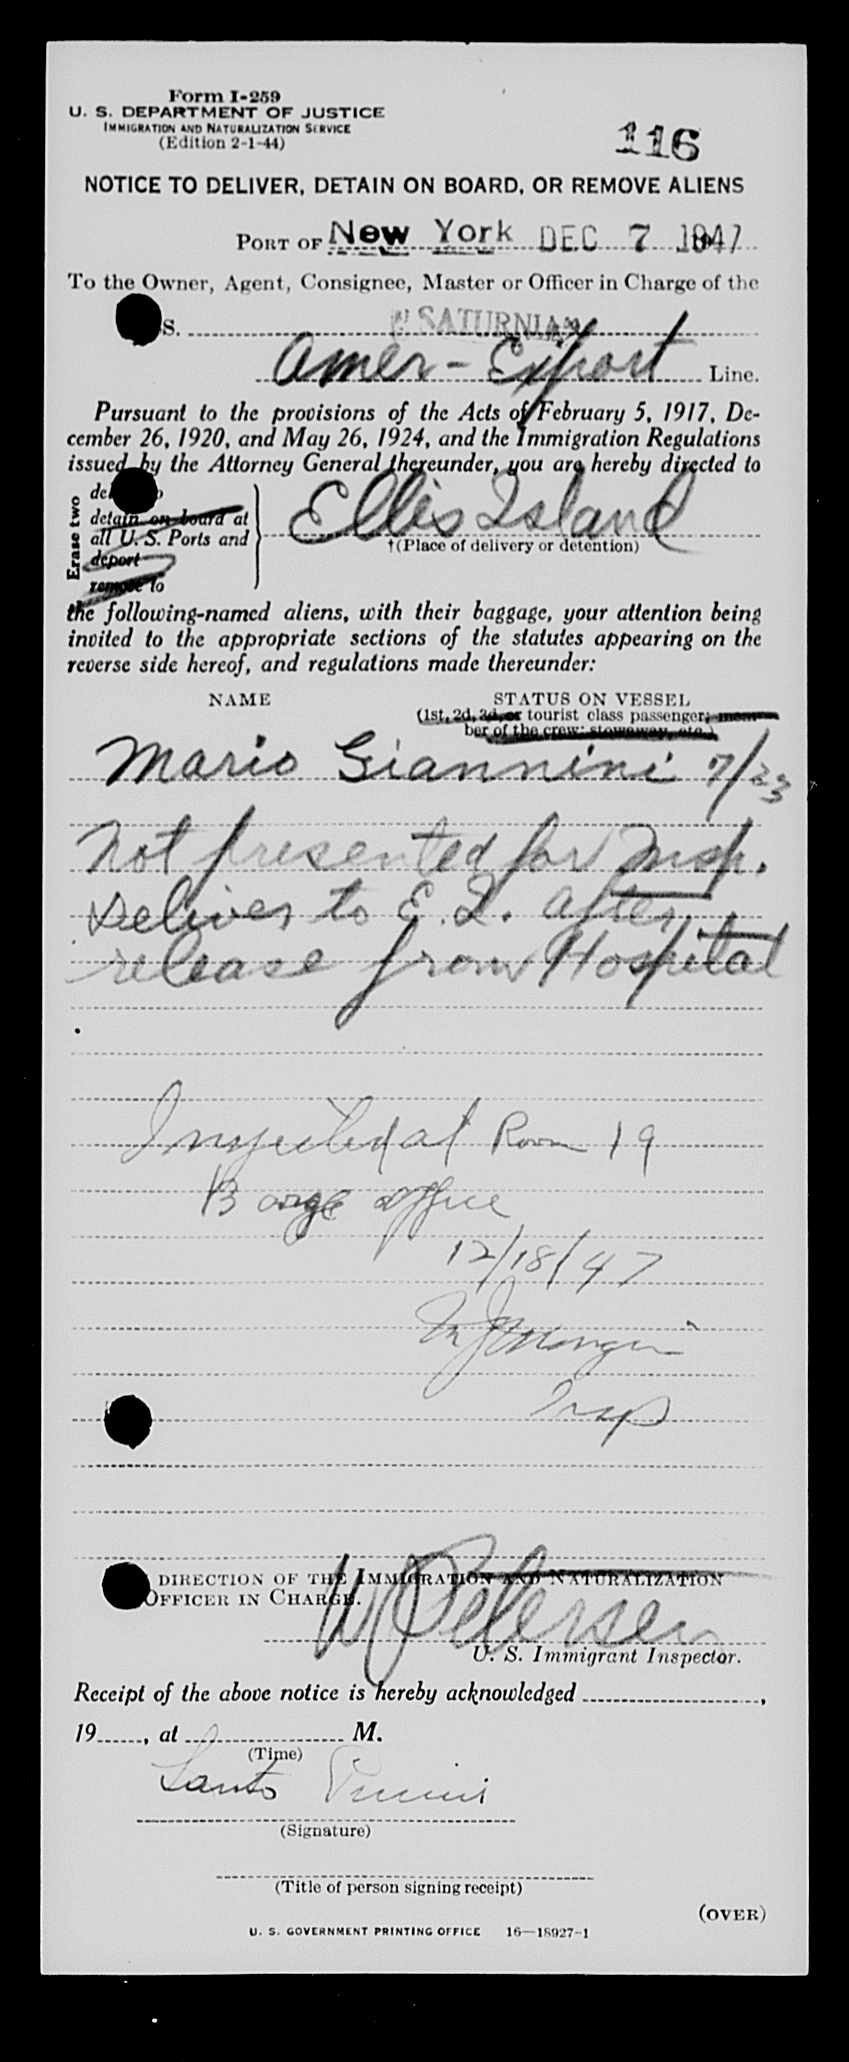 Form I-259
U. S. DEPARTMENT OF JUSTICE
IMMIGRATION AND NATURALIZATION SERVICE
(Edition 2-1-44)
116
NOTICE TO DELIVER, DETAIN ON BOARD, OR REMOVE ALIENS
PORT OF New York DEC 7 1947
To the Owner, Agent, Consignee, Master or Officer in Charge of the
S. SATURNIA
Amer-Export Line.
Pursuant to the provisions of the Acts of February 5, 1917, De-
cember 26, 1920, and May 26, 1924, and the Immigration Regulations
issued by the Attorney General thereunder, you are hereby directed to
Erase two
detain on board at
all U. S. Ports and
deport
remove to
Ellis Island
†(Place of delivery or detention)
the following-named aliens, with their baggage, your attention being
invited to the appropriate sections of the statutes appearing on the
reverse side hereof, and regulations made thereunder:
NAME STATUS ON VESSEL
(1st, 2d, 3d, or tourist class passenger; mem-
ber of the crew; stowaway, etc.)
Mario Giannini 7/23
Not presented for Insp.
Deliver to E. I. after
release from Hospital
Inspected at Room 19
Barge office
12/18/47
Insp
DIRECTION OF THE IMMIGRATION AND NATURALIZATION
OFFICER IN CHARGE.
W Petersen
U. S. Immigrant Inspector.
Receipt of the above notice is hereby acknowledged ,
19 , at M.
(Time)
Santo
(Signature)
(Title of person signing receipt)
(OVER)
U. S. GOVERNMENT PRINTING OFFICE 16—18927-1